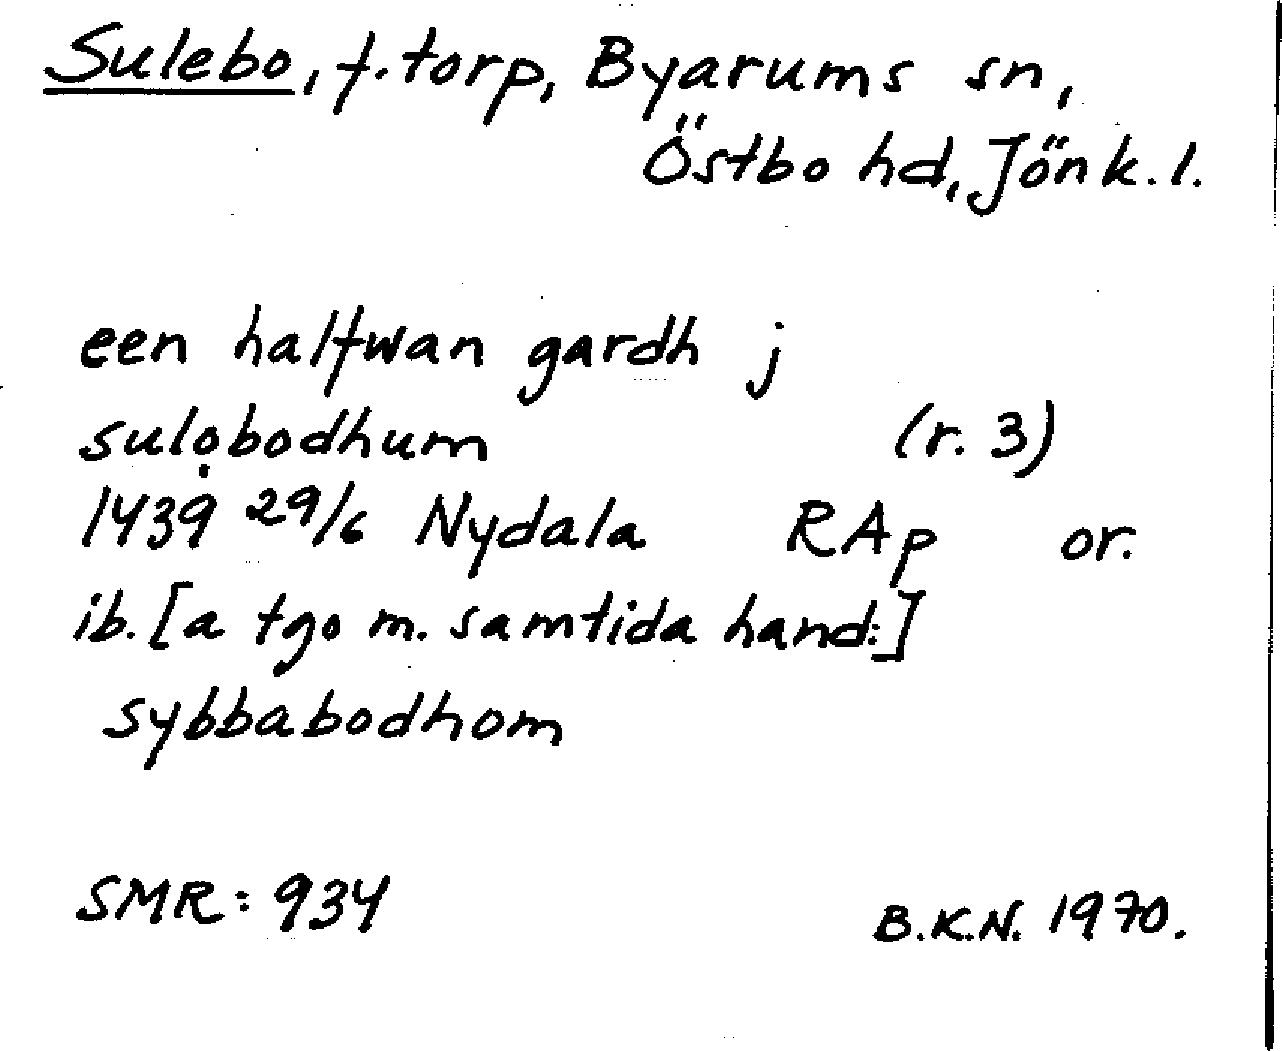 Sulebo, f. torp, Byarums sn,
Östbo hd, Jönk. l.
een halfwan gardh j
sulọbodhum (r. 3)
1439 29/6 Nydala RAp or.
ib. [a tgo m. samtida hand:]
sybbabodhom
SMR: 934
B.K.N. 1970.